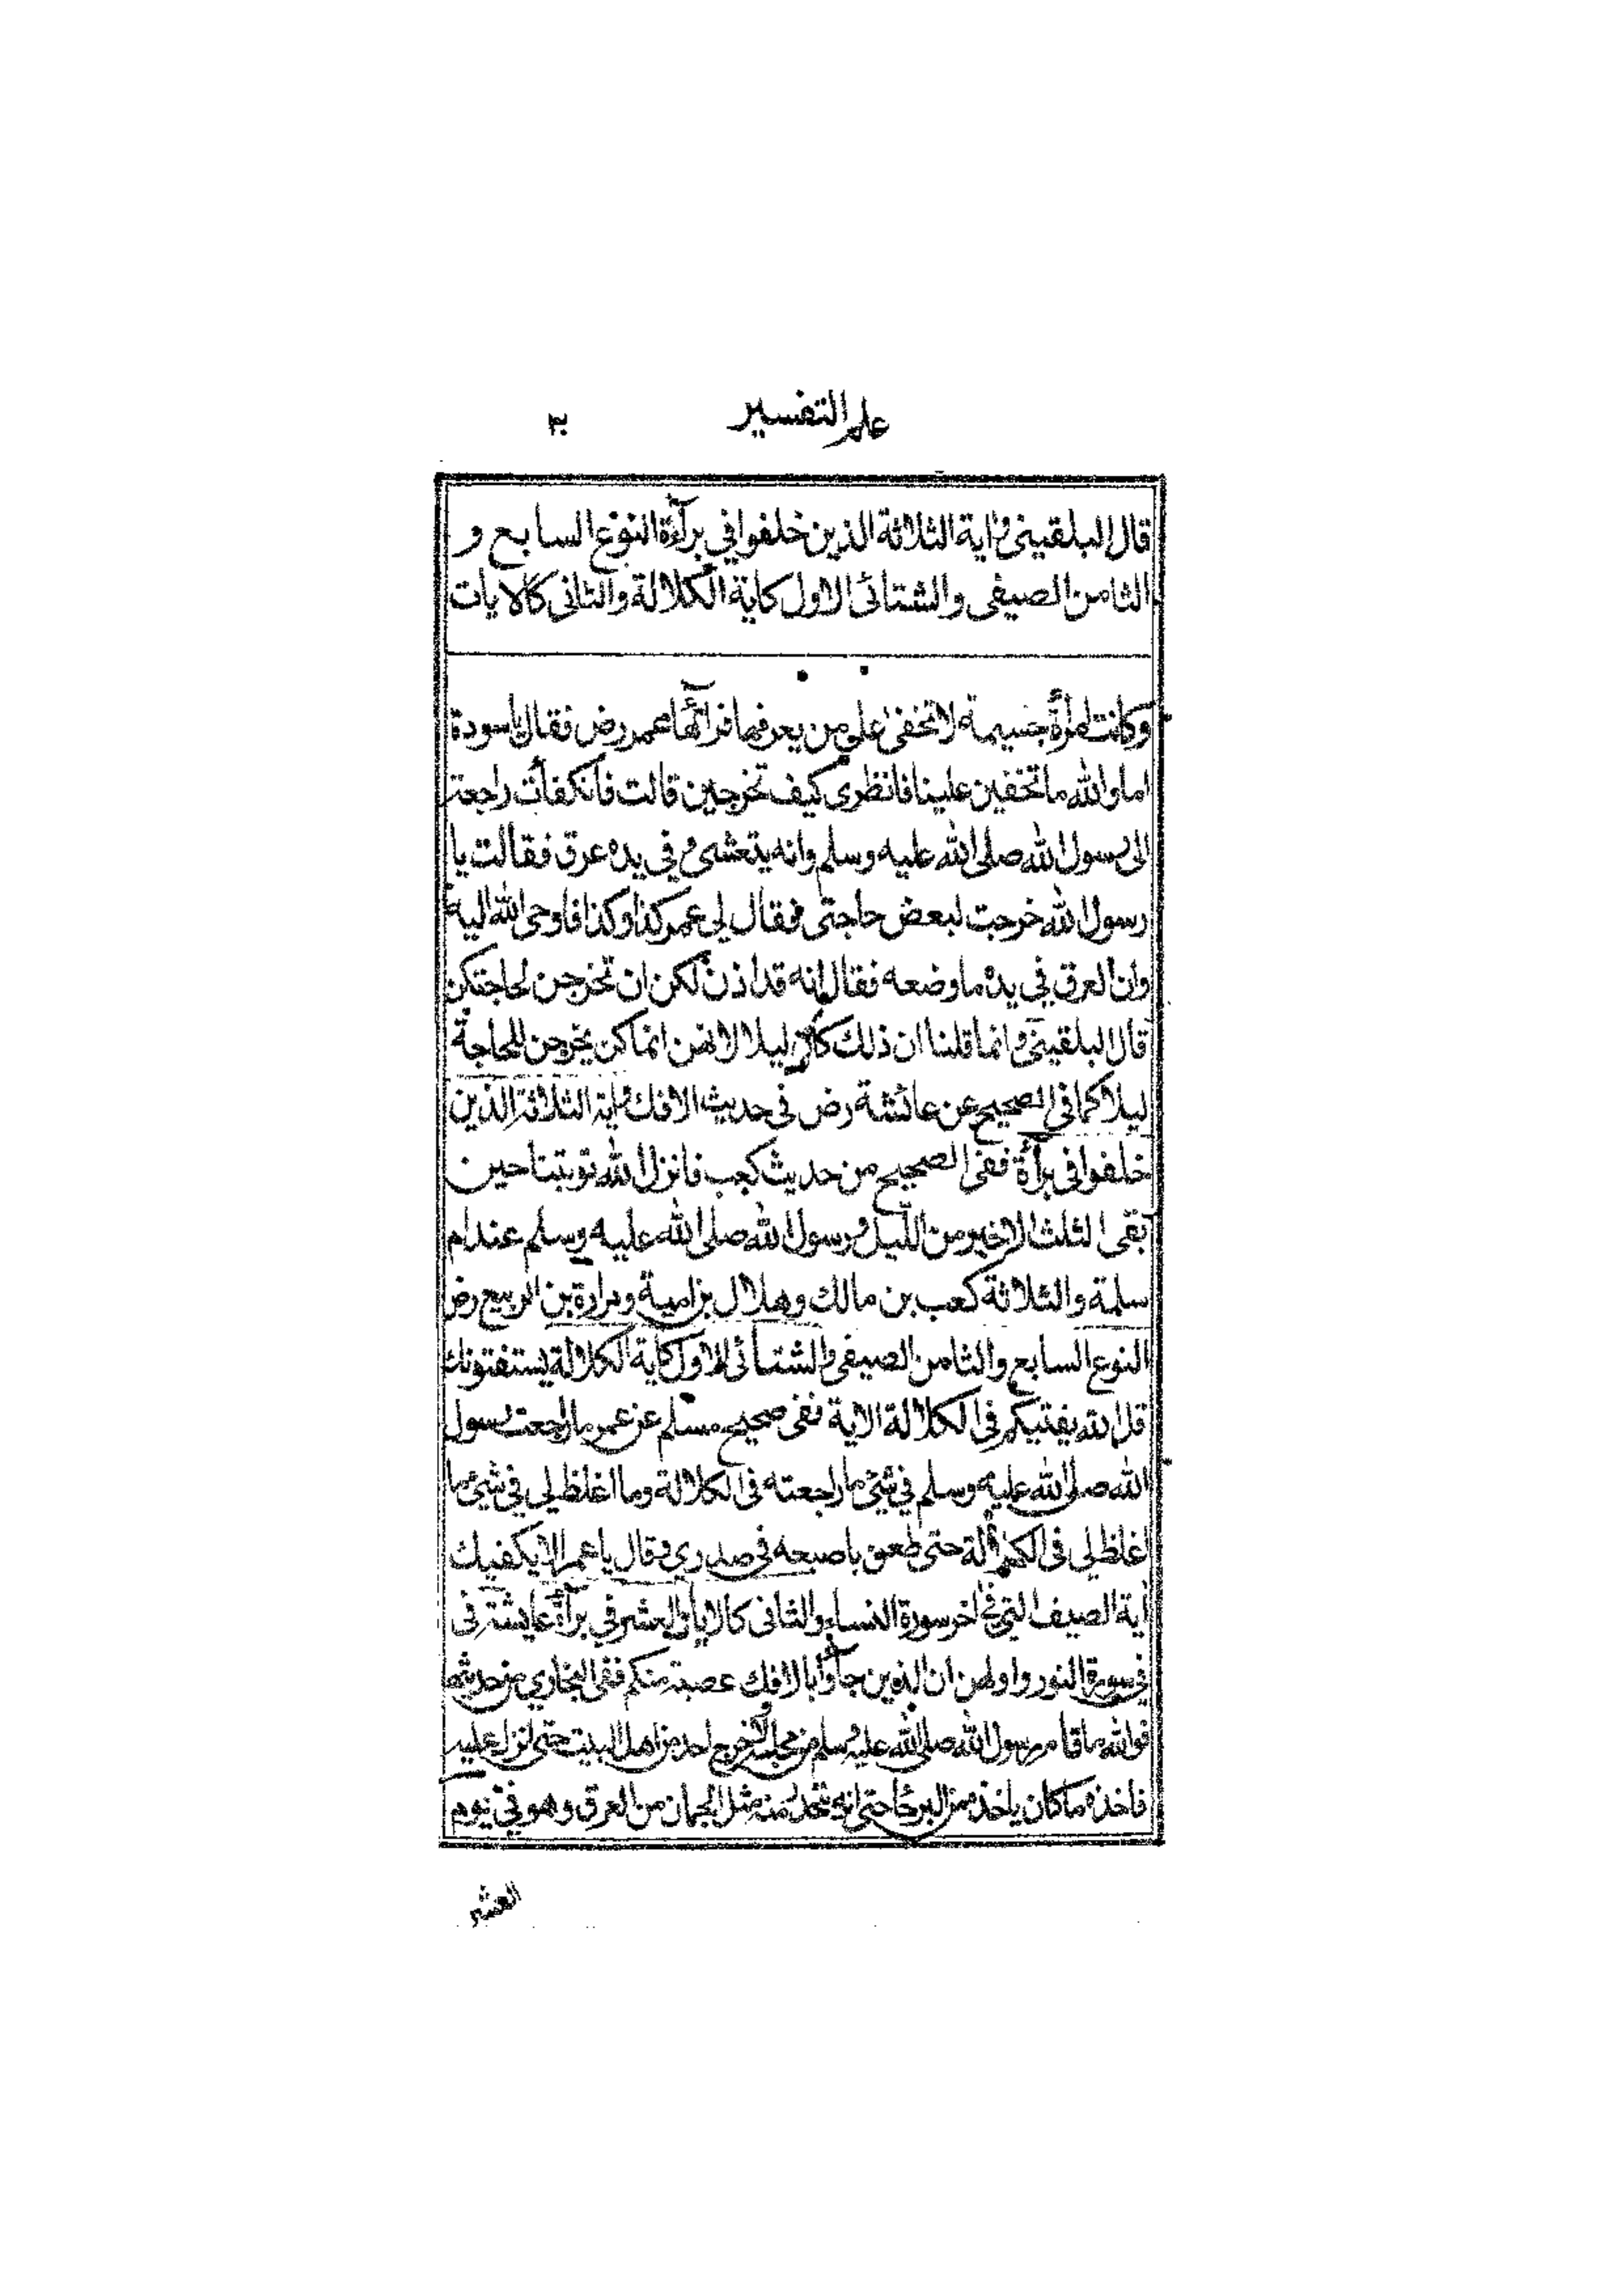 علم التفسير ٣٠
قال البلقيني وآية الثلاثة الذين خلفوا في برآءة النوع السابع و
الثامن الصيفي والشتائي الاول كاية الكلالة والثاني كالايات
وكانت امرأة جسيمة لا تخفى على من يعرفها فرآها عمر رض فقال يا سودة
اما والله ما تخفين علينا فانظرى كيف تخرجين قالت فانكفأت راجعة
الى رسول الله صلى الله عليه وسلم وانه يتعشى وفي يده عرق فقالت يا
رسول الله خرجت لبعض حاجتي فقال لي عمر كذا وكذا فاوحى الله اليه
وان العرق في يده ما وضعه فقال انه قد اذن لكن ان تخرجن لحاجتكن
قال البلقيني وانما قلنا ان ذلك كان ليلا لانهن انما كن يخرجن للحاجة
ليلا كما في الصحيح عن عائشة رض في حديث الافك وآية الثلاثة الذين
خلفوا في برآءة ففي الصحيح من حديث كعب فانزل الله توبتنا حين
بقى الثلث الاخير من الليل ورسول الله صلى الله عليه وسلم عند ام
سلمة والثلاثة كعب بن مالك وهلال بن امية ومرارة بن الربيع رض
النوع السابع والثامن الصيفي والشتائي الاول كاية الكلالة يستفتونك
قل الله يفتيكم في الكلالة الاية ففي صحيح مسلم عن عمر ما راجعت رسول
الله صلى الله عليه وسلم في شئ ما راجعته في الكلالة وما اغلظ لي في شئ ما
اغلظ لي في الكلالة حتى طعن باصبعه في صدري وقال يا عمر الا يكفيك
آية الصيف التي في آخر سورة النساء والثاني كالايات العشر في برآءة عايشة في
في سورة النور واولهن ان الذين جاؤا بالافك عصبة منكم ففي البخاري من حديثها
فوالله ما قام رسول الله صلى الله عليه وسلم من مجلسه ولا خرج احد من اهل البيت حتى انزل عليه
فاخذه ما كان ياخذه من البرحاء حتى انه ليتحدر منه مثل الجمان من العرق وهو في يوم
العشر